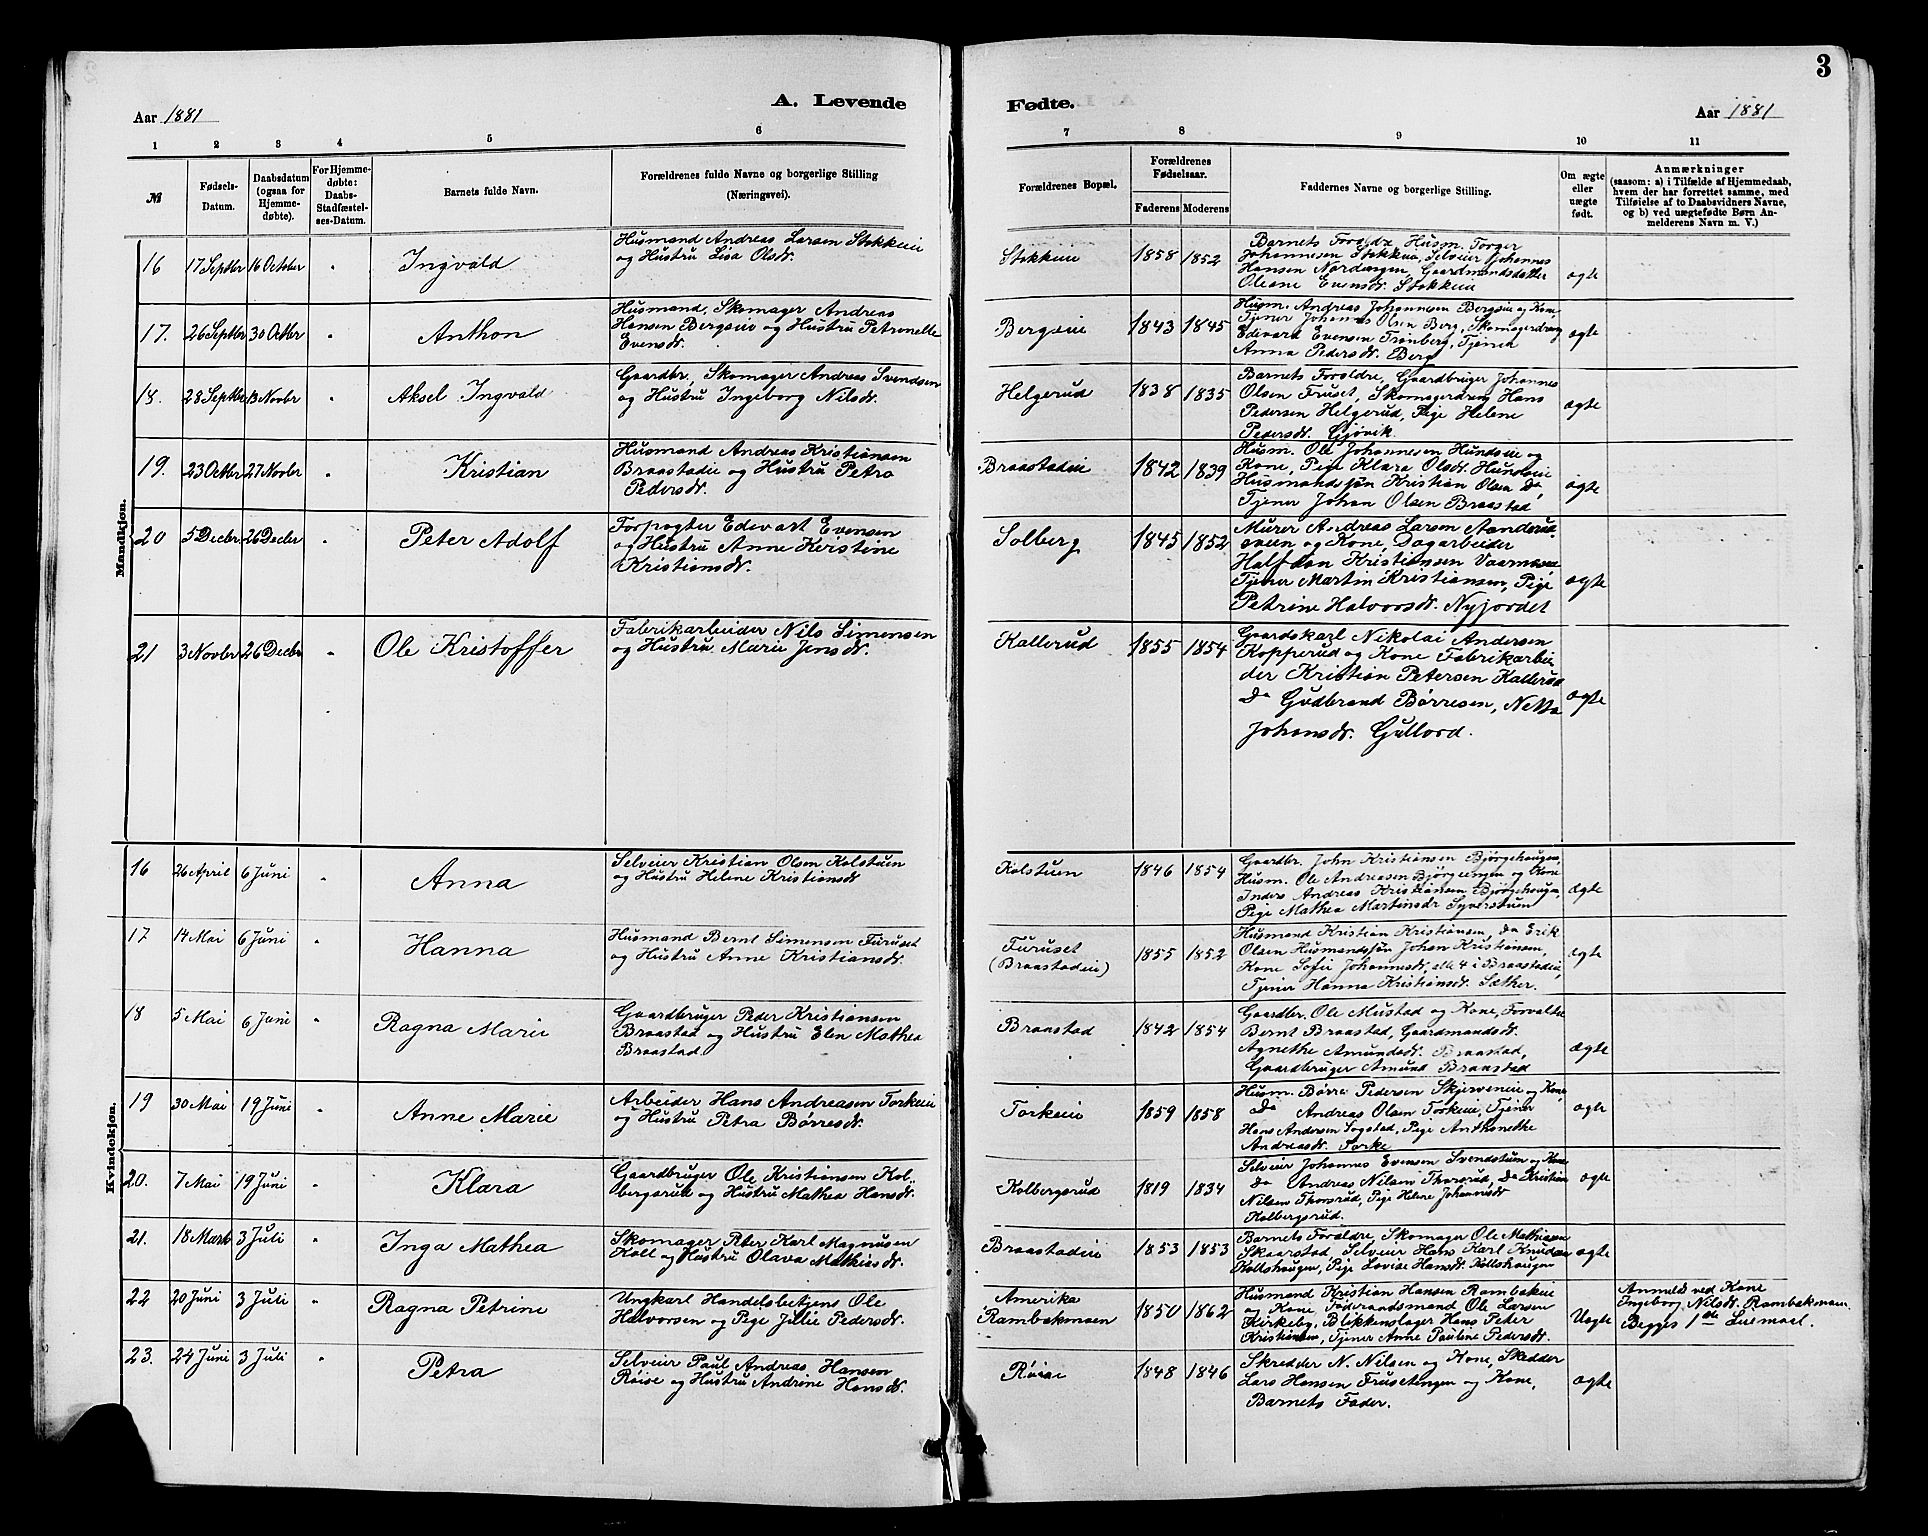 3
A. Levende
Fødte.
Aar 1881
Aar 1881
1 2 3 4 5 6
7 8 9 10 11
№
Fødsels-
Datum.
Daabsdatum
(ogsaa for
Hjemme-
døbte).
For Hjemme-
døbte:
Daabs-
Stadfæstel-
ses-Datum.
Barnets fulde Navn.
Forældrenes fulde Navne og borgerlige Stilling
(Næringsvei).
Forældrenes Bopæl.
Forældrenes
Fødselsaar.
Faderens Moderens
Faddernes Navne og borgerlige Stilling.
Om ægte
eller
uægte
født.
Anmærkninger
(saasom: a) i Tilfælde af Hjemmedaab,
hvem der har forrettet samme, med
Tilføielse af to Daabsvidners Navne,
og b) ved uægtefødte Børn An-
melderens Navn m. V.)
Mandkjøn.
16 17 Septbr 16 October " Ingvald
Husmand Andreas Larsen Stokkeie
og Hustru Lisa Olsdr.
Stokkeie 1858 1852
Barnets Foraldre Husm. Torger
Johannesen Stokkeie, Selveier Johannes
Hansen Nordengen, Gaardmandsdatter
Oleane Evensdr. Stokkeie
ægte
17. 26 Septbr 30 Octbr " Anthon
Husmand, Skomager Andreas
Hansen Bergseie og Hustru Petronelle
Evensdr.
Bergseie 1843 1845
Husm. Andreas Johannesen Bergseie og Kone
Tjener Johannes Olsen Berg, Skomagerdreng
Edevard Evensen Trønberg, Tjener
Anna Pedersdr. Berg
ægte
18. 28 Septbr 13 Novbr " Aksel Ingvald
Gaardbr, Skomager Andreas Svendsen
og Hustru Ingeborg Nilsdr.
Helgerud 1838 1835
Barnets Foraldre, Gaardbruger Johannes
Olsen Fruset, Skomagerdreng Hans
Pedersen Helgerud, Pige Helene
Pedersdr. Gjøvik.
ægte
19. 23 Octbr 27 Novbr " Kristian
Husmand Andreas Kristiansen
Braastadeie og Hustru Petra
Pedersdr.
Braastadeie 1842 1839
Husm. Ole Johannesen Hundseie og
Kone, Pige Klara Olsdr. Hundseie
Husmandssøn Kristian Olsen Do
Tjener Johan Olsen Braastad
ægte
20 5 Decbr 26 Decbr " Peter Adolf
Forpagter Edevart Evensen
og Hustru Anne Kerstine
Kristiansdr.
Solberg 1845 1852
Murer Andreas Larsen Aanderud
sveen og Kone, Dagarbeider
Halfdan Kristiansen
Tjener Martin Kristiansen, Pige
Petrine Halvorsdr. Nyjordet
ægte
21 3 Novbr 26 Decbr " Ole Kristoffer
Fabrikarbeider Nils Simensen
og Hustru Marie Jensdr.
Kallerud 1855 1854
Gaardskarl Nikolai Andersen
Kopperud og Kone Fabrikarbei
der Kristian Petersen Kallerud
Do Gudbrand Børresen, Netta
Johansdr. Gullord.
ægte
Kvindekjøn.
16 26 April 6 Juni " Anna
Selveier Kristian Olsen Kolstuen
og Hustru Helene Kristiansdr
Kolstuen 1846 1854
Gaardbr. John Kristiansen Bjørgehaugen,
Husm. Ole Andreasen Bjørgeengen og Kone
Inders Andreas Kristiansen Bjørgehaugen,
Pige Mathea Martinsdr Syverstuen
ægte
17 14 Mai 6 Juni " Hanna
Husmand Bernt Simensen Furuset
og Hustru Anne Kristiansdr.
Furuset
(Braastadeie)
1855 1852
Husmand Kristian Kristiansen, Do Erik
Olsen Husmandssøn Johan Kristiansen,
Kone Sofie Johannesdr, alle 4 i Braastadeie,
Tjener Hanna Kristiansdr. Sæther.
ægte
18 5 Mai 6 Juni " Ragna Marie
Gaardbruger Peder Kristiansen
Braastad og Hustru Elen Mathea
Braastad.
Braastad 1842 1854
Gaardbr. Ole Mustad og Kone, Forvalter
Bernt Braastad, Gaardmandsdr.
Agnethe Amundsdr. Braastad,
Gaardbruger Amund Braastad
ægte
19 30 Mai 19 Juni " Anne Marie
Arbeider Hans Andreasen Torkeie
og Hustru Petra Børresdr.
Torkeie 1859 1858
Husm. Børre Pedersen Skjerveneie og Kone,
Do Andreas Olsen Torkeie, Tjener
Hans Andersen Sogstad, Pige Anthonette
Andreasdr. Torke
ægte
20. 7 Mai 19 Juni " Klara
Gaardbruger Ole Kristiansen Kol-
bergsrud og Hustru Mathea Hansdr.
Kolbergsrud 1819 1834
Selveier Johannes Evensen Svendstuen og Kone
Do Andreas Nilsen Thorsrud, Do Kristian
Nilsen Thorsrud, Pige Helene Johannesdr
Kolbergsrud.
ægte
21. 18 Marts 3 Juli " Inga Mathea
Skomager Peter Karl Magnusen
Koll og Hustru Olava Mathiasdr.
Braastadeie 1853 1853
Barnets Foraldre, Skomager Ole Mathiasen
Skaarstad, Selveier Hans Karl Knudsen
Kollshaugen, Pige Lovise Hansdr. Kollshaugen
ægte
22 20 Juni 3 Juli " Ragna Petrine
Ungkarl Handelsbetjent Ole
Halvorsen og Pige Julie Pedersdr.
Amerika
Rambekmoen
1850 1862
Husmand Kristian Hansen Rambekeie
og Kone, Føderaadsmand Ole Larsen
Kirkeby, Blikkenslager Hans Peter
Kristiansen, Tjener Anne Pauline Pedersdr.
Uægte
Anmeldt ved Kone
Ingeborg Nilsdr. Rambekmoen.
Begges 1ste Leiemaal.
23. 24 Juni 3 Juli " Petra
Selveier Paul Andreas Hansen
Røise og Hustru Andrine Hansdr.
Røise 1848 1846
Skredder N. Nilsen og Kone, Skedder
Lars Hansen Frusetengen og Kone,
Barnets Fader.
ægte